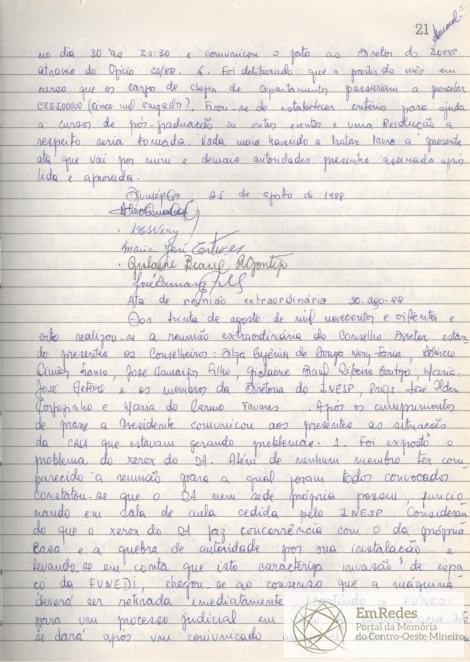 21
no dia 30 às 20:30 e comunicou o fato ao Diretor do
através do Ofício 20/88. 4. Foi deliberado que a partir do mês em
curso que os cargos de chefia de Departamentos passariam a perceber
CZ$5.000,00 (cinco mil cruzados). Ficou-se de estabelecer critérios para ajuda
a cursos de pós-graduação ou outros eventos e uma Resolução a
respeito seria tomada. Nada mais havendo a tratar lavro a presente
ata que vai por mim e demais autoridades presentes assinada após
lida e aprovada.
Divinópolis 25 de agosto de 1988
Maria José
Ata de reunião extraordinária 30.ago.88
Aos trinta de agosto de mil novecentos e oitenta e
oito realizou-se a reunião extraordinária do Conselho Diretor, estan-
do presentes os Conselheiros: Eugênia de Souza Nery Faria,
Franco, José Camargos Filho, Gislaine Ribeiro Gontijo, Maria
José e os membros da Diretoria do INESP, Prof. José
e Maria do Carmo Tavares. Após os cumprimentos
de praxe a Presidente comunicou aos presentes as situações
da CASA que estavam gerando problemas. 1. Foi exposto o
problema do xerox do DA. Além de nenhum membro ter com-
parecido a reunião para a qual foram todos convocados
constatou-se que o DA nem sede própria possui, funcio-
nando em sala de aula cedida pelo INESP. Consideran-
do que o xerox do DA faz concorrência com o da própria
casa e a quebra de autoridade por sua instalação e
levando-se em conta que isto caracteriza invasão de espa-
ço da FUNEDI, chegou-se ao consenso que a máquina
deverá ser retirada imediatamente a FUNEDI
para um processo judicial em
se dará após um comunicado
EmRedes
Portal da Memória
do Centro-Oeste Mineiro